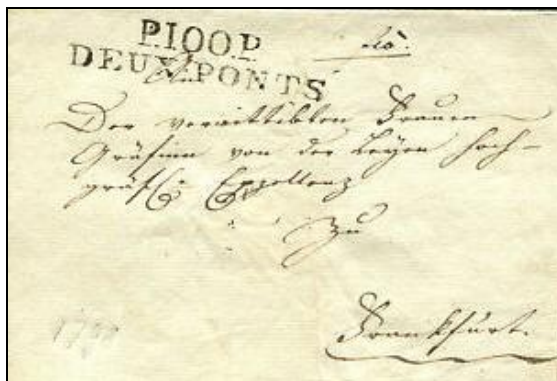 P.100.P.
DEUX-PONTS
Der verwittibten Frauen
Gräfinn von der Leyen hoch-
gräfl. Exzellenz
zu
Frankfurt.